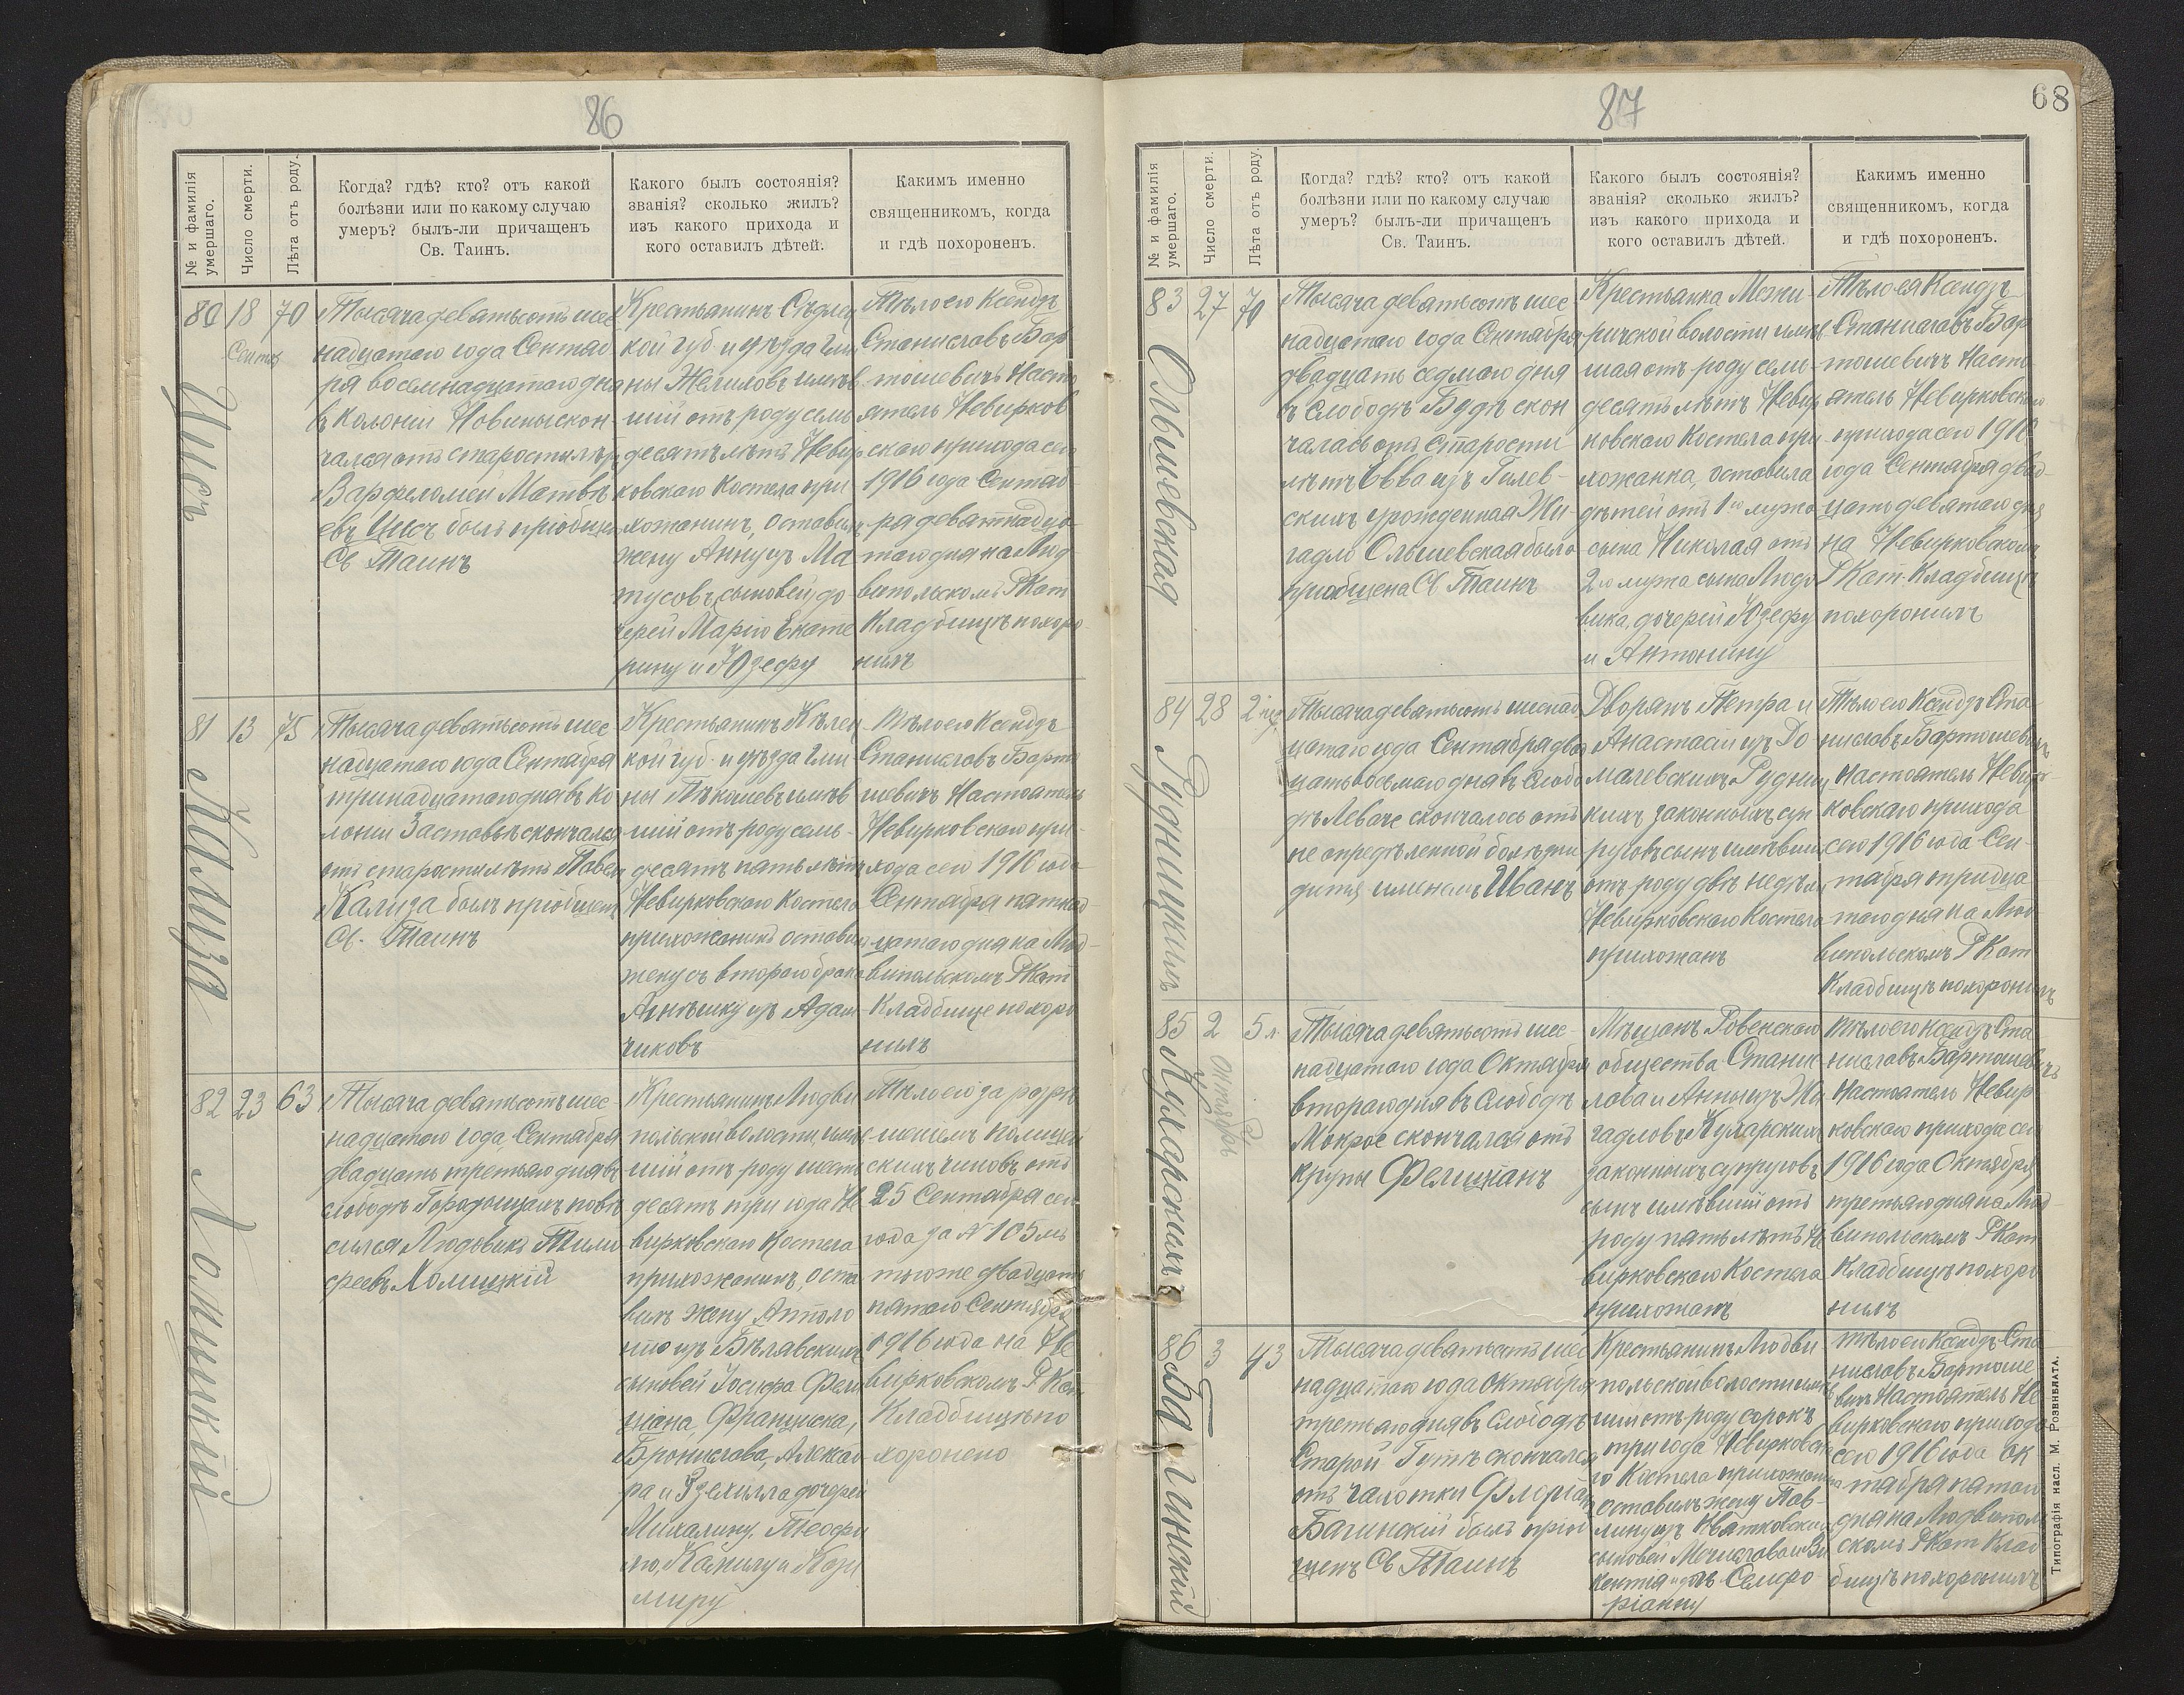 86
№ и фамилія умершаго.
Число смерти.
Лѣта отъ роду.
Когда? гдѣ? кто? отъ какой
болѣзни или по какому случаю
умеръ? былъ-ли причащенъ
Св. Таинъ.
Какого былъ состоянія?
званія? сколько жилъ?
изъ какого прихода и
кого оставилъ дѣтей.
Какимъ именно
священникомъ, когда
и гдѣ похороненъ.
80
Цисъ
18
Сентяб
70
Тысяча девятьсотъ шес
надцатаго года Сентяб
ря восемнадцатаго дня
въ Колоніи Новины скон-
чался отъ старости лѣтъ
Варфоломей Матвѣ
евъ Цисъ былъ пріобщенъ
Св Таинъ
Крестьянинъ Сѣдлец
кой губ. и уѣзда Гми
ны Желиловъ имѣв
шій отъ роду семь
десятъ лѣтъ Невир
ковскаго Костела при
хожанинъ, оставилъ
жену Анну изъ Ма
тусовъ, сыновей, до
черей Марію Екате
рину и Юзефу
Тѣло его Ксендзъ
Станиславъ Бар
тошевичъ Насто
ятель Невирков
скаго прихода сего
1916 года Сентяб
ря девятнадца
таго дня на Люд
випольскомъ РКат
Кладбищѣ похоро
нилъ
81
Кализа
13
75
Тысяча девятьсотъ шес
надцатаго года Сентября
тринадцатаго дня въ Ко
лоніи Заставье скончался
отъ старости лѣтъ Павелъ
Кализа былъ пріобщенъ
Св. Таинъ
Крестьянинъ Кѣлец
кой губ. и уѣзда Гми
ны имѣв
шій отъ роду семь-
десятъ пять лѣтъ
Невирковскаго Костела
прихожанинъ оставилъ
жену съ втораго брака
Агнешку изъ Адам
чиковъ
Тѣло его Ксендзъ
Станиславъ Барто
шевичъ Настоятель
Невирковскаго при-
хода сего 1916 года
Сентября пятнад-
цатаго дня на Люд-
випольскомъ РКат
Кладбище похоро
нилъ
82
Хомицкій
23
63
Тысяча девятьсотъ шес-
надцатаго года Сентября
двадцать третьяго дня въ
слободѣ Городищахъ повѣ
сился Людовикъ Тимо
феевъ Хомицкій
Крестьянинъ Людви
польской волости, имѣв-
шій отъ роду шесть
десятъ три года Не
вирковскаго Костела
прихожанинъ, оста
вилъ жену Аполо
нію изъ Бѣлявскихъ
сыновей Іосифа Фели
ціана, Францишка,
Бронислава, Александ
ра и дочерей
Михалину, Теофи
лю, Камилу и Кази
миру
Тѣло его за разрѣ
шеніемъ полицей
скихъ чиновъ отъ
25 Сентября сего
года за № 105 мъ
тогоже двадцать
пятаго Сентября
1916 года на Не
вирковскомъ РКат
Кладбищѣ по
хоронено
87
68
№ и фамилія умершаго.
Число смерти.
Лѣта отъ роду.
Когда? гдѣ? кто? отъ какой
болѣзни или по какому случаю
умеръ? былъ-ли причащенъ
Св. Таинъ.
Какого былъ состоянія?
званія? сколько жилъ?
изъ какого прихода и
кого оставилъ дѣтей.
Какимъ именно
священникомъ, когда
и гдѣ похороненъ.
83
Ольшевская
27
70
Тысяча девятьсотъ шес
надцатаго года Сентября
двадцать седмаго дня
въ Слободѣ Будѣ скон
чалась отъ Старости
лѣтъ Евва изъ Гилев-
скихъ урожденная Жи-
гадло Ольшевская была
пріобщена Св Таинъ
Крестьянка Межи-
ричской волости имѣв
шая отъ роду семь-
десятъ лѣтъ Невир
ковскаго Костела при
хожанка, оставила
дѣтей отъ 1го мужа
сына Николая отъ
2го мужа сына Людо
вика, дочерей Юзефу
и Антонину
Тѣло ея Ксендзъ
Станиславъ Бар
тошевичъ Насто
ятель Невирковскаго
прихода сего 1916
года Сентября двад
цать девятаго дня
на Невирковскомъ
РКат. Кладбищѣ
похоронилъ
84
Рудницкихъ
28
2 нед
Тысяча девятьсотъ шеснад
цатаго года Сентября двад
цать восьмаго дня въ Слобо
дѣ Леваче скончалось отъ
не опредѣленной болѣзни
дитя именемъ Иванъ
Дворянъ Петра и
Анастасіи изъ До
малевскихъ Рудниц
кихъ законныхъ суп
руговъ сынъ имѣвшій
отъ роду двѣ недѣли
Невирковскаго Костела
прихожанъ
Тѣло его Ксендзъ Ста
ниславъ Бартошевичъ
Настоятель Невир
ковскаго прихода
сего 1916 года Сен-
тября тридца
таго дня на Люд
випольскомъ РКат
Кладбищѣ похоронилъ
85
Кухарскихъ
2
Октября
5 л
Тысяча девятьсотъ шес-
надцатаго года Октября
втораго дня въ Слободѣ
Мокрое скончался отъ
крупы Фелиціанъ
Мѣщанъ Ровенскаго
общества Станис
лава и Анны изъ Жи
гадловъ Кухарскихъ
законныхъ супруговъ
сынъ имѣвшій отъ
роду пять лѣтъ Не
вирковскаго Костела
прихожанъ
Тѣло его Ксендзъ Ста
ниславъ Бартошевичъ
Настоятель Невир
ковскаго прихода сего
1916 года Октября
третьяго дня на Люд-
випольскомъ РКат
Кладбищѣ похоро
нилъ
86
Багинскій
3
43
Тысяча девятьсотъ шес
надцатаго года Октября
третьяго дня въ Слободѣ
Старой Гутѣ скончался
отъ чахотки Флоріанъ
Багинскій былъ пріоб
щенъ Св Таинъ
Крестьянинъ Людви
польской волости имѣв
шій отъ роду сорокъ
три года Невирковска
го Костела прихожанинъ
оставилъ жену Пав-
лину изъ Квятковскихъ
сыновей Мечислава и Ви
кентія и дочь Семфо
ріанну
Тѣло его Ксендзъ Ста
ниславъ Бартоше
вичъ Настоятель Не
вирковскаго прихода
сего 1916 года Ок
тября пятаго
дня на Людвиполь
скомъ РКат Клад
бищѣ похоронилъ
Типографія насл. М. Розенблата.